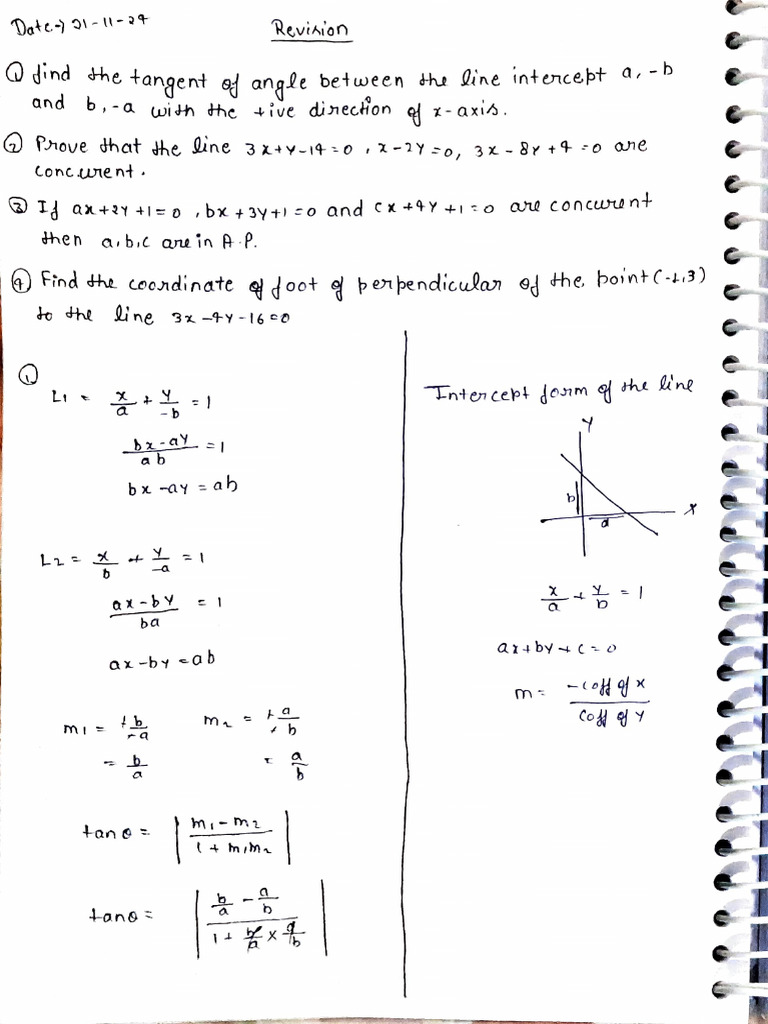 Date→ 21-11-24
Revision
① find the tangent of angle between the line intercept a, -b
and b, -a with the +ive direction of x-axis.
② Prove that the line 3x+y-14=0, x-2y=0, 3x-8y+4=0 are
concurent.
③ If ax+2y+1=0, bx+3y+1=0 and cx+4y+1=0 are concurent
then a,b,c are in A.P.
④ Find the coordinate of foot of perpendicular of the point (-1,3)
to the line 3x-4y-16=0
①
L1 = x/a + y/-b = 1
(bx-ay)/ab = 1
bx-ay = ab
L2 = x/b + y/-a = 1
(ax-by)/ba = 1
ax-by = ab
m1 = +b/+a m2 = +a/+b
= b/a = a/b
tanθ = |(m1-m2)/(1+m1m2)|
tanθ = |(b/a - a/b)/(1 + b/a × a/b)|
Intercept form of the line
Y
b
X
a
x/a + y/b = 1
ax+by+c=0
m = -coff of x/coff of y